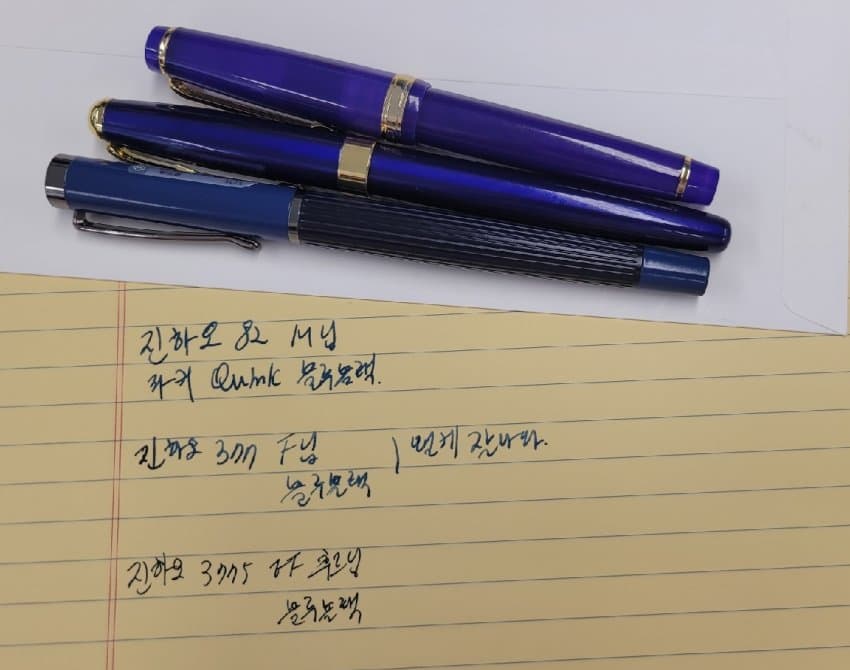 진하오 82 M닙
파커 Quink 블루블랙.
진하오 377 F닙
블루블랙
잘나와.
진하오 EF 후드닙
블루블랙